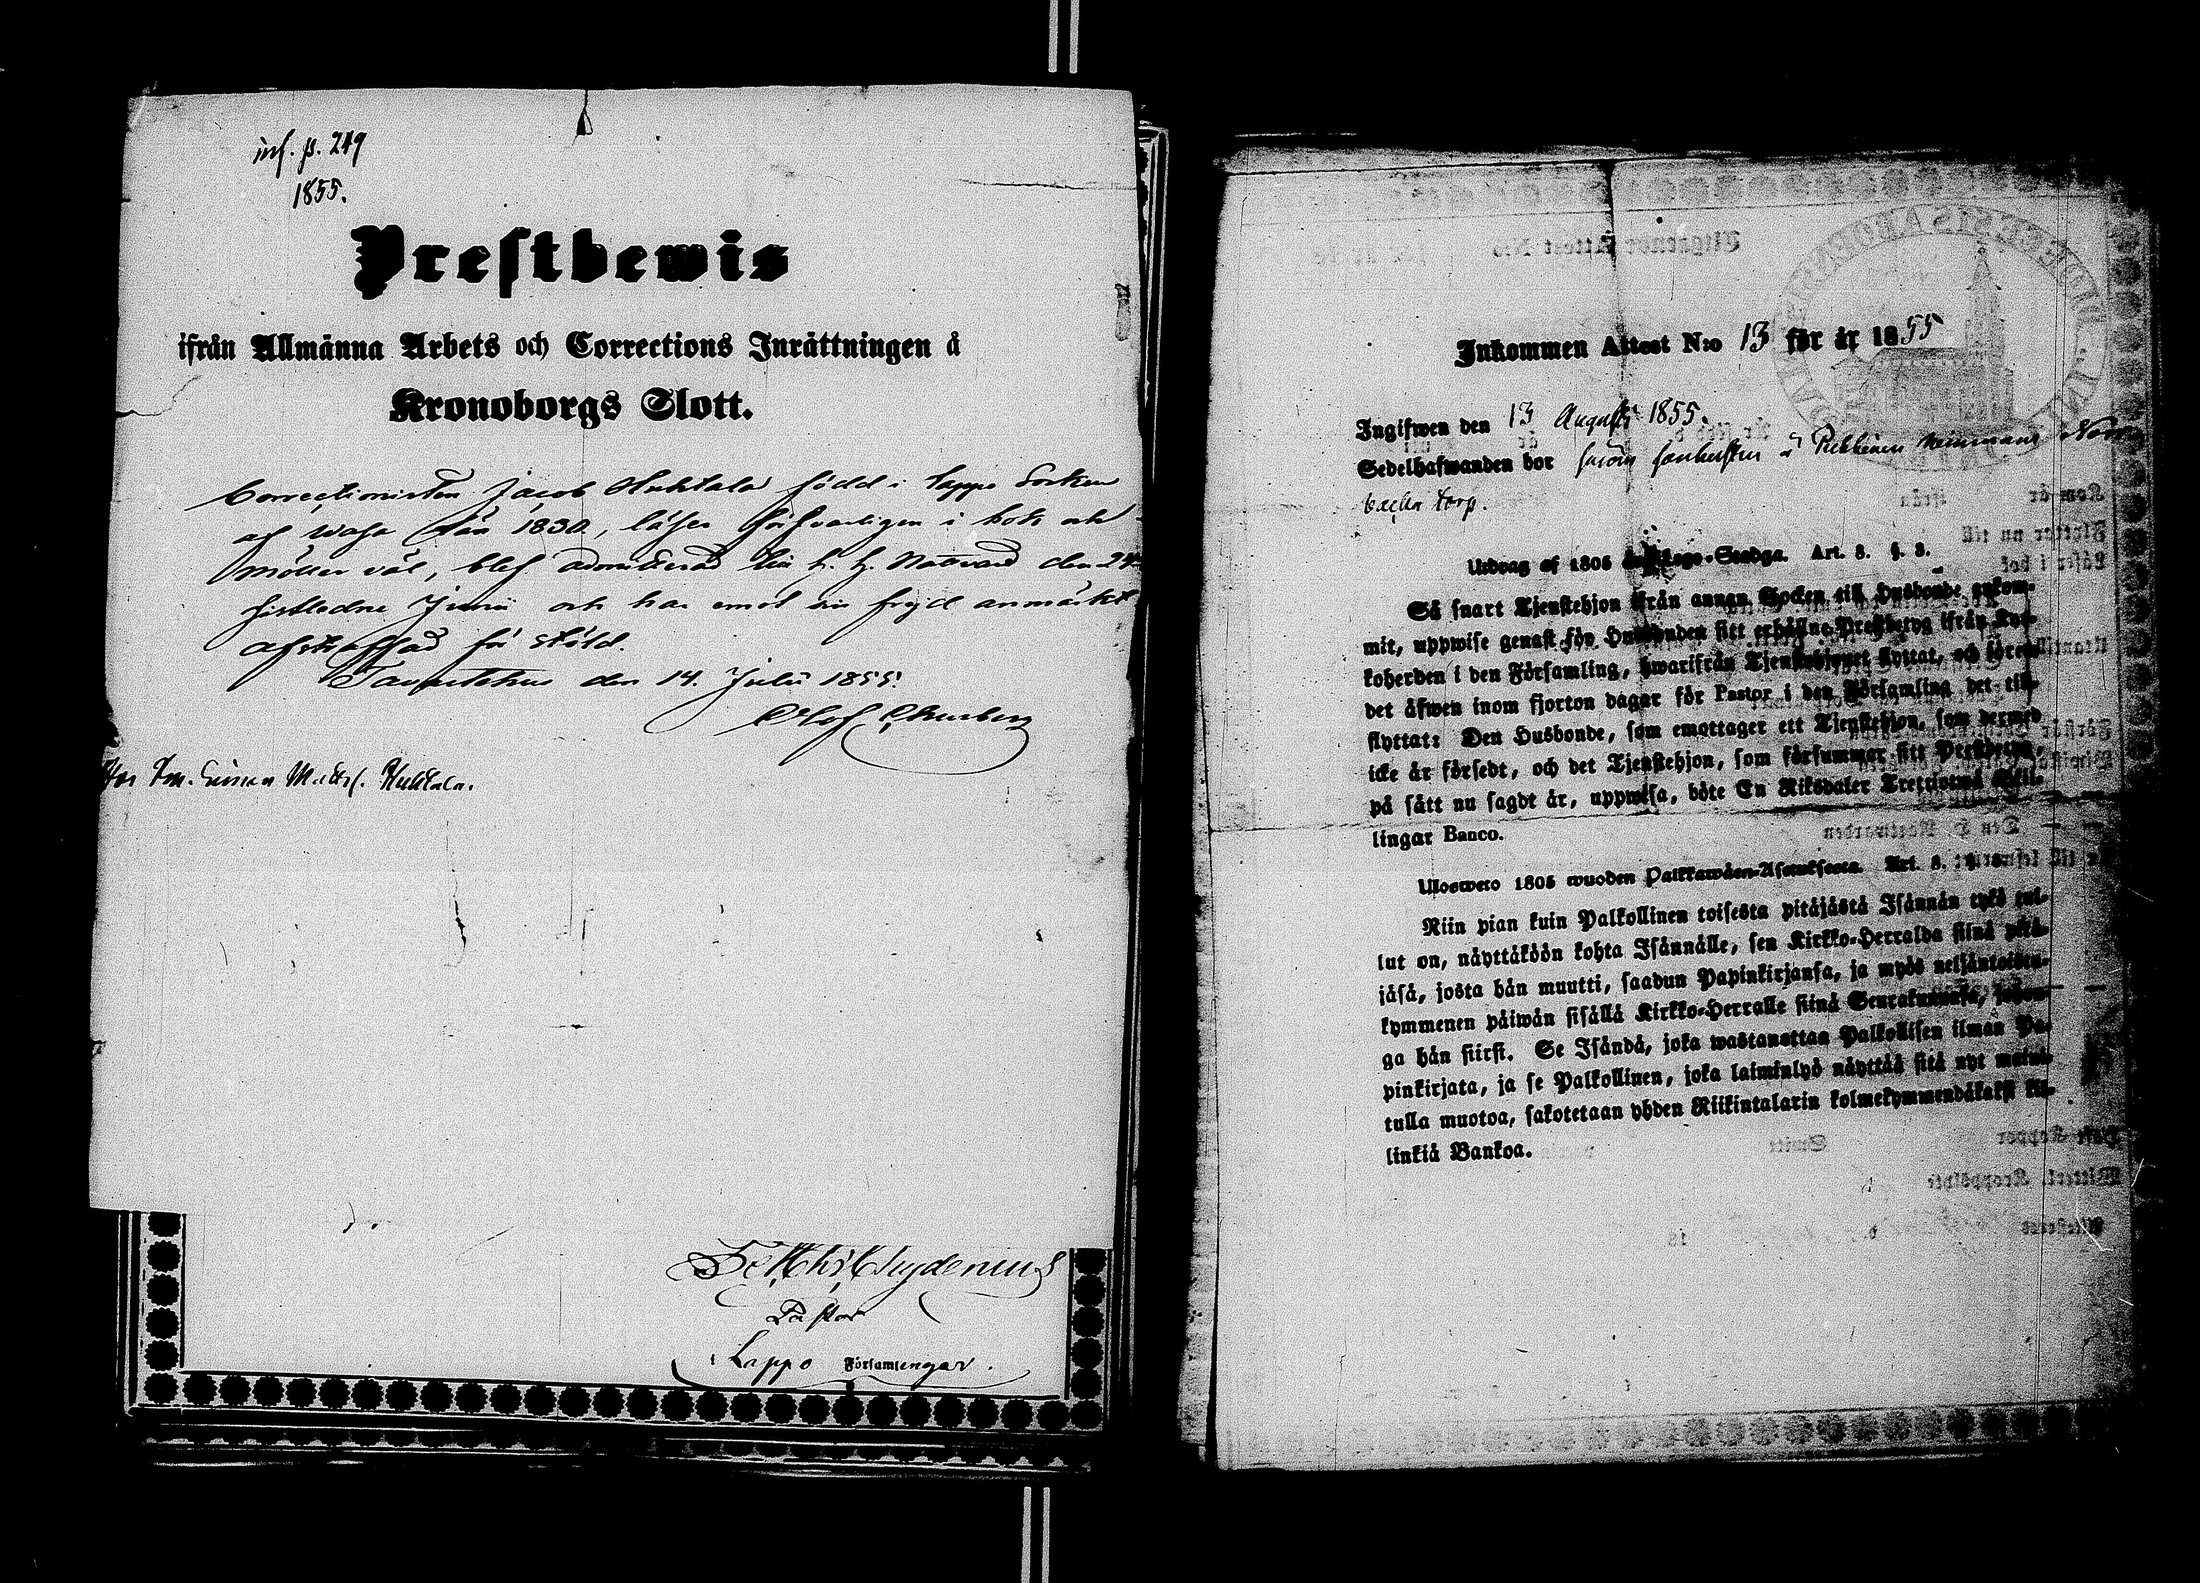 inf. p. 249
1855.
Prestbewis
ifrån Allmänna Arbets och Corrections Inrättningen å
Kronoborgs Slott.
Correctionisten Jacob Huhtala född i Lappo Socken
af Wasa Län 1830, läser försvarligen i bok och
möter väl, blef admitterad till h. h. Nattvard den 24
sistledne Junii och har emot sin frejd anmärkt
afstraffad för stöld.
Tavastehus den 14. Julii 1855.
Olof
Matts. Huhtala.
Pastor
i Lappo Församlengar.
Inkommen Attest N:o 13 för år 1855
Ingifwen den 13 Augusti 1855.
Sedelhafwanden bor
torp.
Utdrag af 1805 Lego-Stadga. Art. 8. §. 3.
Så snart Tjenstehjon ifrån annan Socken till Husbonde ankom-
mit, uppwise genast för Husbonden sitt erhållne Prestbetyg ifrån Kyr-
koherden i den Församling, hwarifrån Tjenstehjonet flyttat, och förete
det äfwen inom fjorton dagar för Pastor i den Församling det till-
flyttat: Den Husbonde, som emottager ett Tjenstehjon, som dermed
icke är försedt, och det Tjenstehjon, som försummar sitt Prestbetyg,
på sätt nu sagdt är, uppwisa, böte En Riksdaler Trettiotwå Skil-
lingar Banco.
Ulosweto 1805 wuoden Palkkawäen-Asetuksesta. Art. 8.
Niin pian kuin Palkollinen toisesta pitäjästä Isännän tykö tul-
lut on, näyttäköön kohta Isännälle, sen Kirkko-Herralda siinä pitä-
jäsä, josta hän muutti, saadun Papinkirjansa, ja myös neljäntoisen-
kymmenen päiwän sisällä Kirkko-Herralle siinä Seurakunnasa, johon-
ga hän siirsi. Se Isändä, joka wastanottaa Palkollisen ilman Pa-
pinkirjata, ja se Palkollinen, joka laiminlyö näyttää sitä nyt mainit-
tulla muotoa, sakotetaan yhden Riikintalarin kolmekymmendäkaksi kil-
linkiä Bankoa.